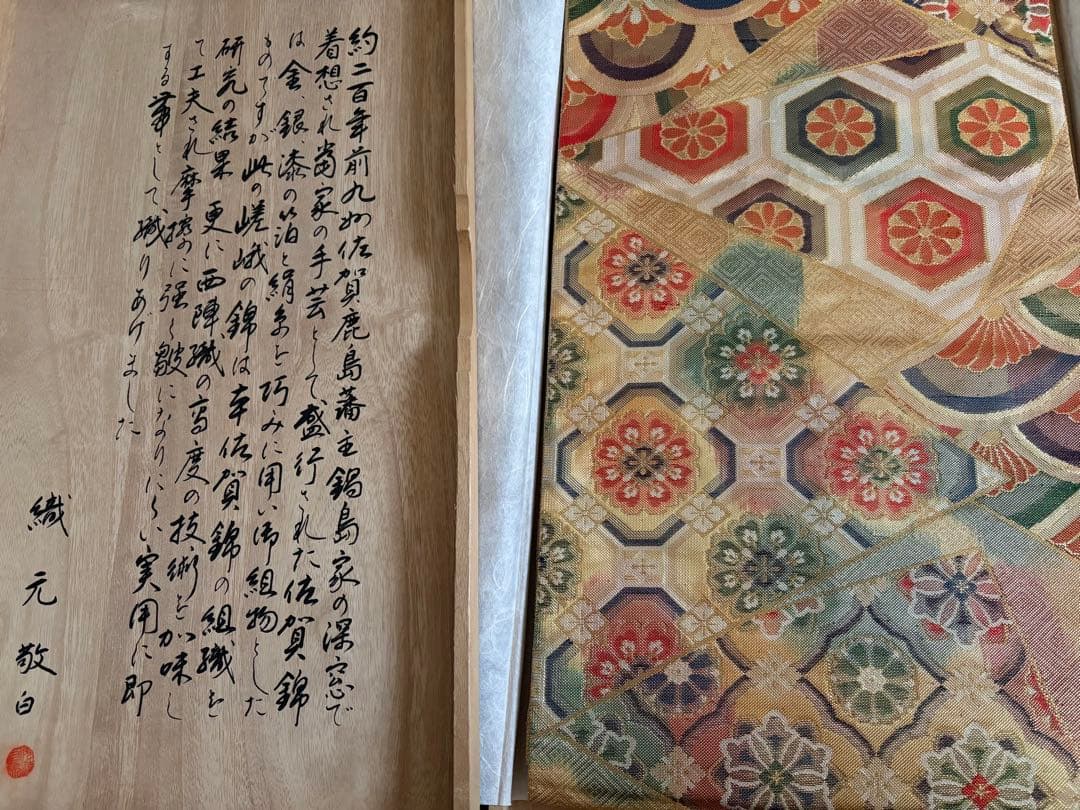 約二百年前九州佐賀鹿島藩主鍋島家の深窓で
着想され当家の手芸として盛行された佐賀錦
は金、銀、漆の箔と絹糸を巧みに用い御組物とした
ものですが此の嵯峨の錦は本佐賀錦の組織を
研究の結果 更に西陣織の高度の技術を加味し
て工夫され摩擦に強く皺になりにくい実用に即
する華として、織りあげました
織元敬白